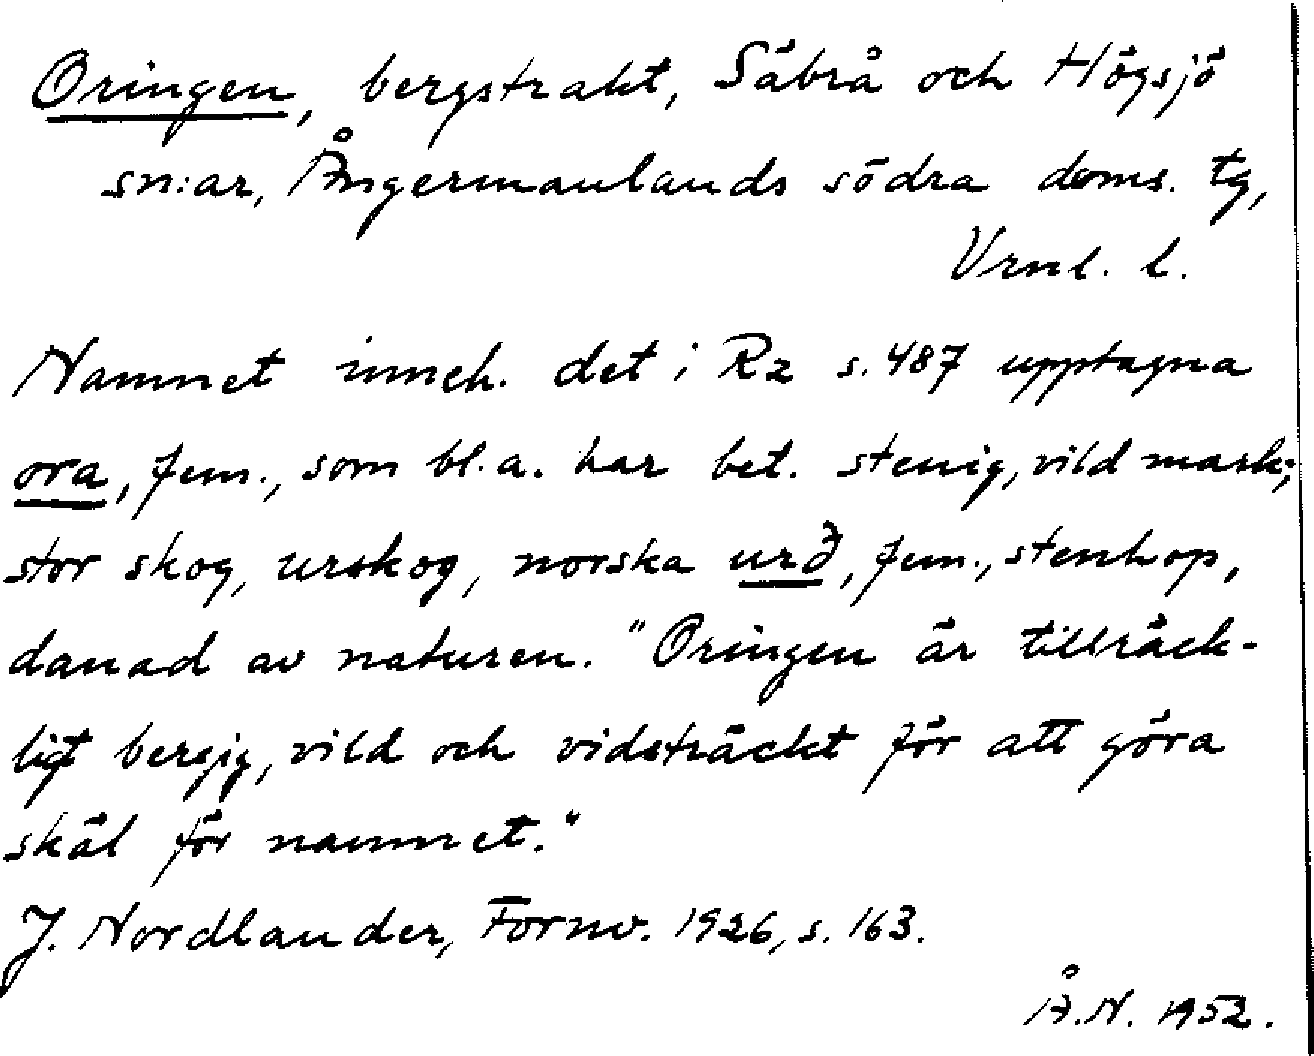 Oringen, bergstrakt, Säbrå och Högsjö
sn:ar, Ångermanlands södra doms. tg,
Vrnl. l.
Namnet inneh. det i Rz s. 487 upptagna
ora, fem., som bl.a. har bet. stenig, vild mark;
stor skog, urskog, norska urð, fem., stenhop,
danad av naturen. "Oringen är tillräck-
ligt bergig, vild och vidsträckt för att göra
skäl för namnet."
J. Nordlander, Fornv. 1926, s. 163.
Å.N. 1952.